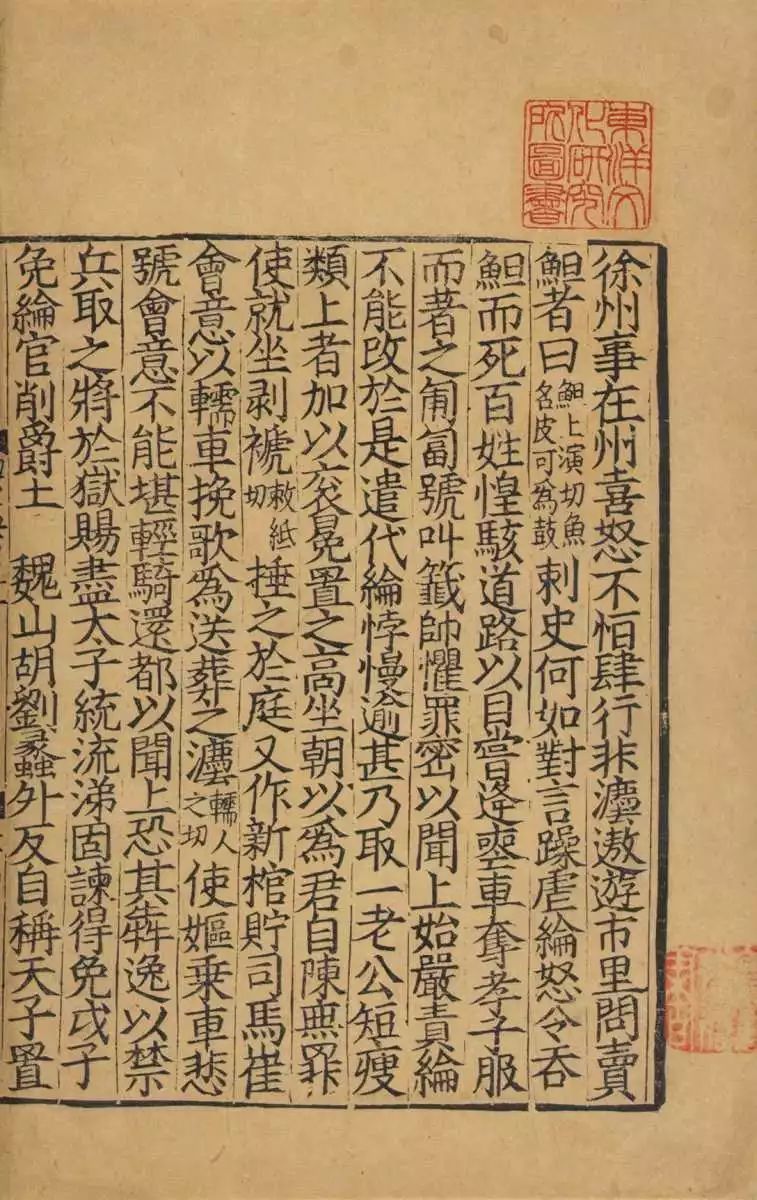 東洋文
化研究
所圖書
徐州事在州喜怒不恒肆行非灋遨遊市里問賣
䱇者曰䱇上演切魚名皮可為鼓刺史何如對言躁虐綸怒令吞
䱇而死百姓惶駭道路以目嘗逢喪車奪孝子服
而著之匍匐號叫籖帥懼罪密以聞上始嚴責綸
不能改於是遣代綸悖慢逾甚乃取一老公短瘦
類上者加以衮冕置之高坐朝以爲君自陳無罪
使就坐剥褫敕紙切捶之於庭又作新棺貯司馬崔
會意以轜車挽歌爲送葬之灋轜人之切使嫗乗車悲
號會意不能堪輕騎還都以聞上恐其犇逸以禁
兵取之將於獄賜盡太子統流涕固諫得免戊子
免綸官削爵土　魏山胡劉蠡外反自稱天子置